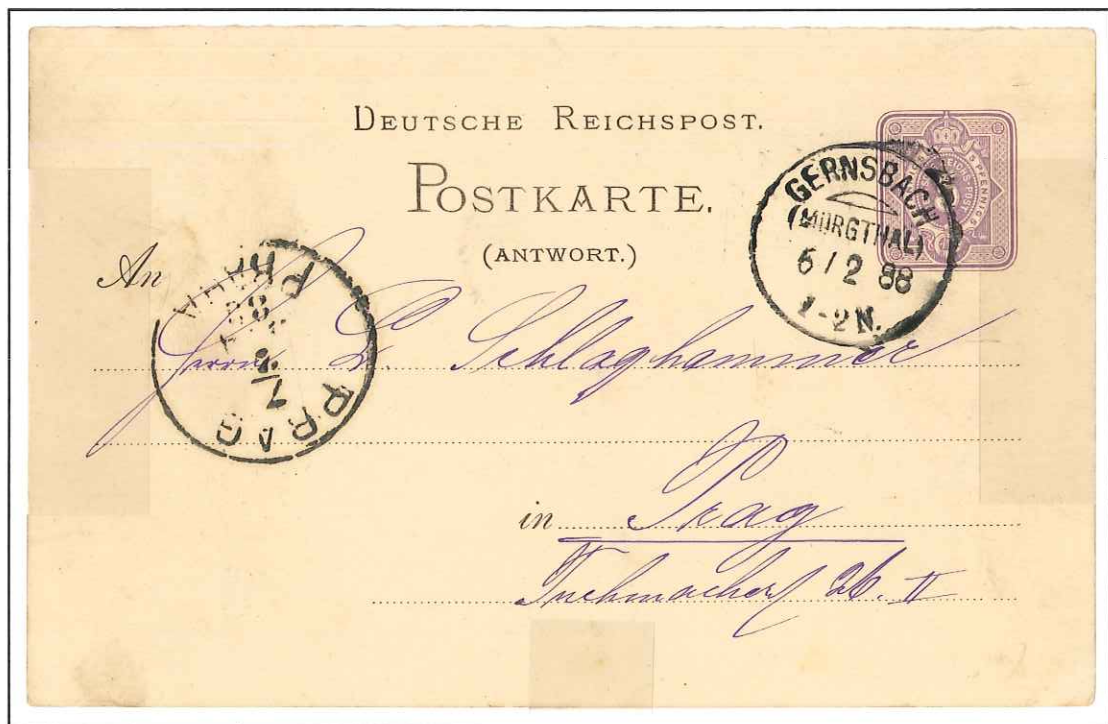 DEUTSCHE REICHSPOST.
POSTKARTE.
(ANTWORT.)
5 PFENNIG
GERNSBACH
(MURGTHAL)
6/2 88
1-2N.
An
PRAHA
PRAG
Herrn L. Schlaghammer
in Prag
Tuchmacherg 26. II